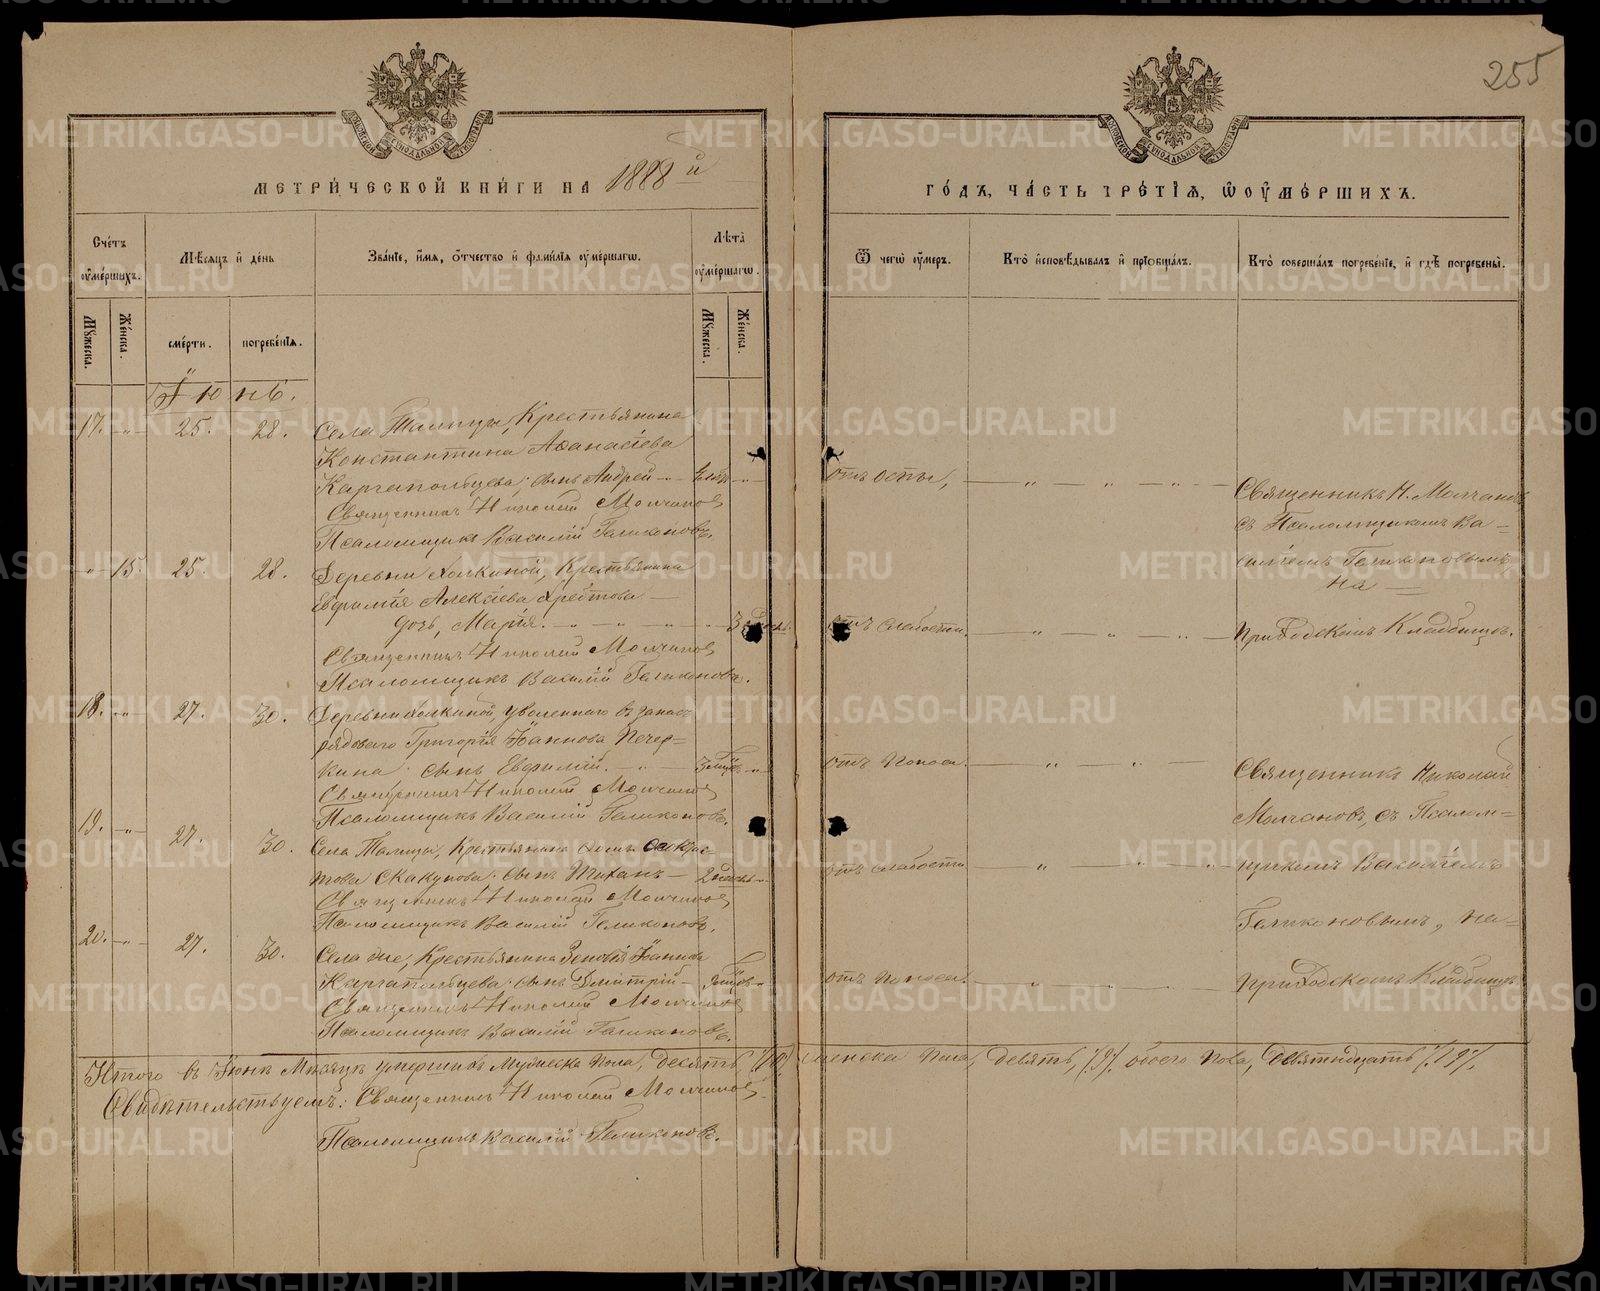 255
МЕТРИЧЕСКОЙ КНИГИ НА 1888 й
ГОДЪ, ЧАСТЬ ТРЕТІЯ, Ѡ ОУМЕРШИХЪ.
Счетъ оумершихъ.
Мѣсяцъ и день
Званіе, имя, отчество и фамилія оумершагѡ.
Лѣта оумершагѡ.
Ѿ чегѡ оумеръ.
Кто исповѣдывалъ и пріобщалъ.
Кто совершалъ погребеніе, и гдѣ погребены.
Мужеска.
Женска.
смерти.
погребенія.
Мужеска.
Женска.
Іюнь.
17. 25. 28. Села Талицы, Крестьянина
Константина Аѳанасіева
Каргапольцева, сынъ Андрей
отъ оспы,
Священникъ Николай Молчановъ
Псаломщикъ Василій Геликоновъ.
Священникъ Н. Молчановъ
съ Псаломщикомъ Ва-
силіемъ Геликоновымъ
на
приходскомъ Кладбищѣ.
15. 25. 28. Деревни Холкиной, Крестьянина
Евфимія Алексіева
дочь, Марія.
отъ слабости.
Священникъ Николай Молчановъ
Псаломщикъ Василій Геликоновъ.
18. 27. 30. Деревни Холкиной, уволеннаго въ запасъ
рядоваго Григорія Іоаннова Печер-
кина сынъ Евфимій.
отъ поноса.
Священникъ Николай Молчановъ
Псаломщикъ Василій Геликоновъ.
Священникъ Николай
Молчановъ, съ Псалом-
щикомъ Василіемъ
Геликоновымъ, на
приходскомъ Кладбищѣ.
19. 27. 30. Села Талицы, Крестьянина
Скакунова сынъ Тихонъ
отъ слабости
Священникъ Николай Молчановъ
Псаломщикъ Василій Геликоновъ.
20. 27. 30. Села же, Крестьянина Зеновія Іоаннова
Каргапольцева сынъ Димитрій
отъ поноса.
Священникъ Николай Молчановъ
Псаломщикъ Василій Геликоновъ.
Итого въ Іюнѣ Мѣсяцѣ умершихъ Мужеска пола, десять (10) женска пола, девять, (9) обоего пола, девятнадцать (19).
Свидѣтельствуемъ: Священникъ Николай Молчановъ
Псаломщикъ Василій Геликоновъ.
METRIKI.GASO-URAL.RU